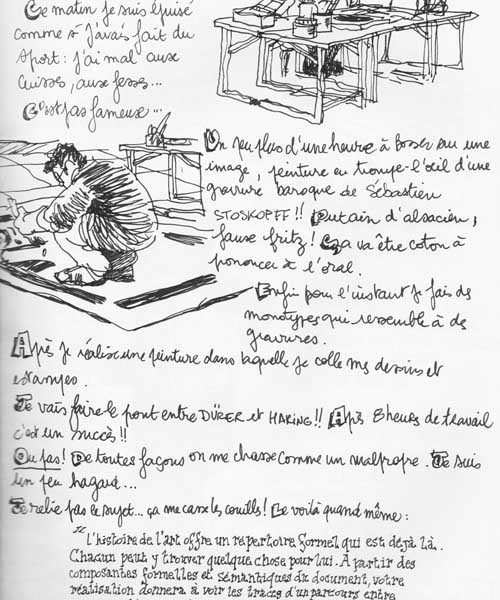 Ce matin je suis épuisé
comme si j'avais fait du
sport : j'ai mal aux
cuisses, aux fesses...
C'est pas fameux...
Un peu plus d'une heure à bosser sur une
image, peinture en trompe-l'œil d'une
gravure baroque de Sébastien
STOSKOPFF !! Putain d'alsacien,
fausse fritz ! Cza va être coton à
prononcer à l'oral.
Enfin pour l'instant je fais des
monotypes qui ressemble à des
gravures.
Après je réalise une peinture dans laquelle je colle mes dessins et
estampes.
Je vais faire le pont entre DÜRER et HARING !! Après 8 heures de travail
c'est un succès !!
Ou pas ! De toutes façons on me chasse comme un malpropre. Je suis
un peu hagard...
Je relie pas le sujet... ça me casse les couilles ! Le voilà quand même :
"L'histoire de l'art offre un répertoire formel qui est déjà là.
Chacun peut y trouver quelque chose pour lui. A partir des
composantes formelles et sémantiques du document, votre
réalisation donnera à voir les traces d'un parcours entre